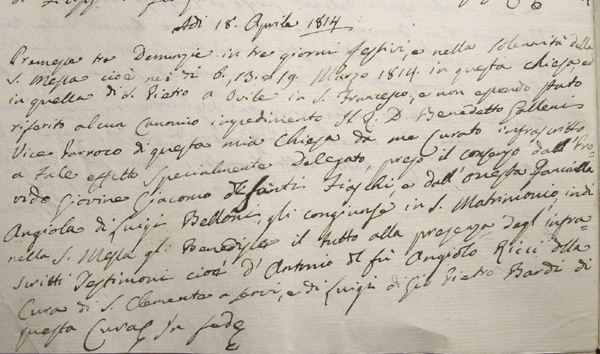 Adì 18. Aprile 1814
Premesse tre Denunzie in tre giorni festivi, e nella solennità della
S. Messa cioè nei dì 6, 13. e 19. Marzo 1814. in questa Chiesa, ed
in quella di S. Pietro a Ovile in S. Francesco, e non essendo stato
riferito alcun Canonico impedimento Il R. D. Benedetto
Vice Parroco di questa mia Chiesa da me Curato infrascritto
a tale effetto specialmente Delegato, preso il consenso dall'
vido Giovine Giacomo di Santi Fioschi, e dall'onesta Fanciulla
Angiola di Luigi Belloni, gli congiunse in S. Matrimonio, indi
nella S. Messa gli Benedisse il tutto alla presenza degl'infra=
scritti Testimoni cioè d'Antonio del fù Angiolo Ricci della
Cura di S. Clemente a servi, e di Luigi di Gio Pietro Bardi di
questa Cura In fede